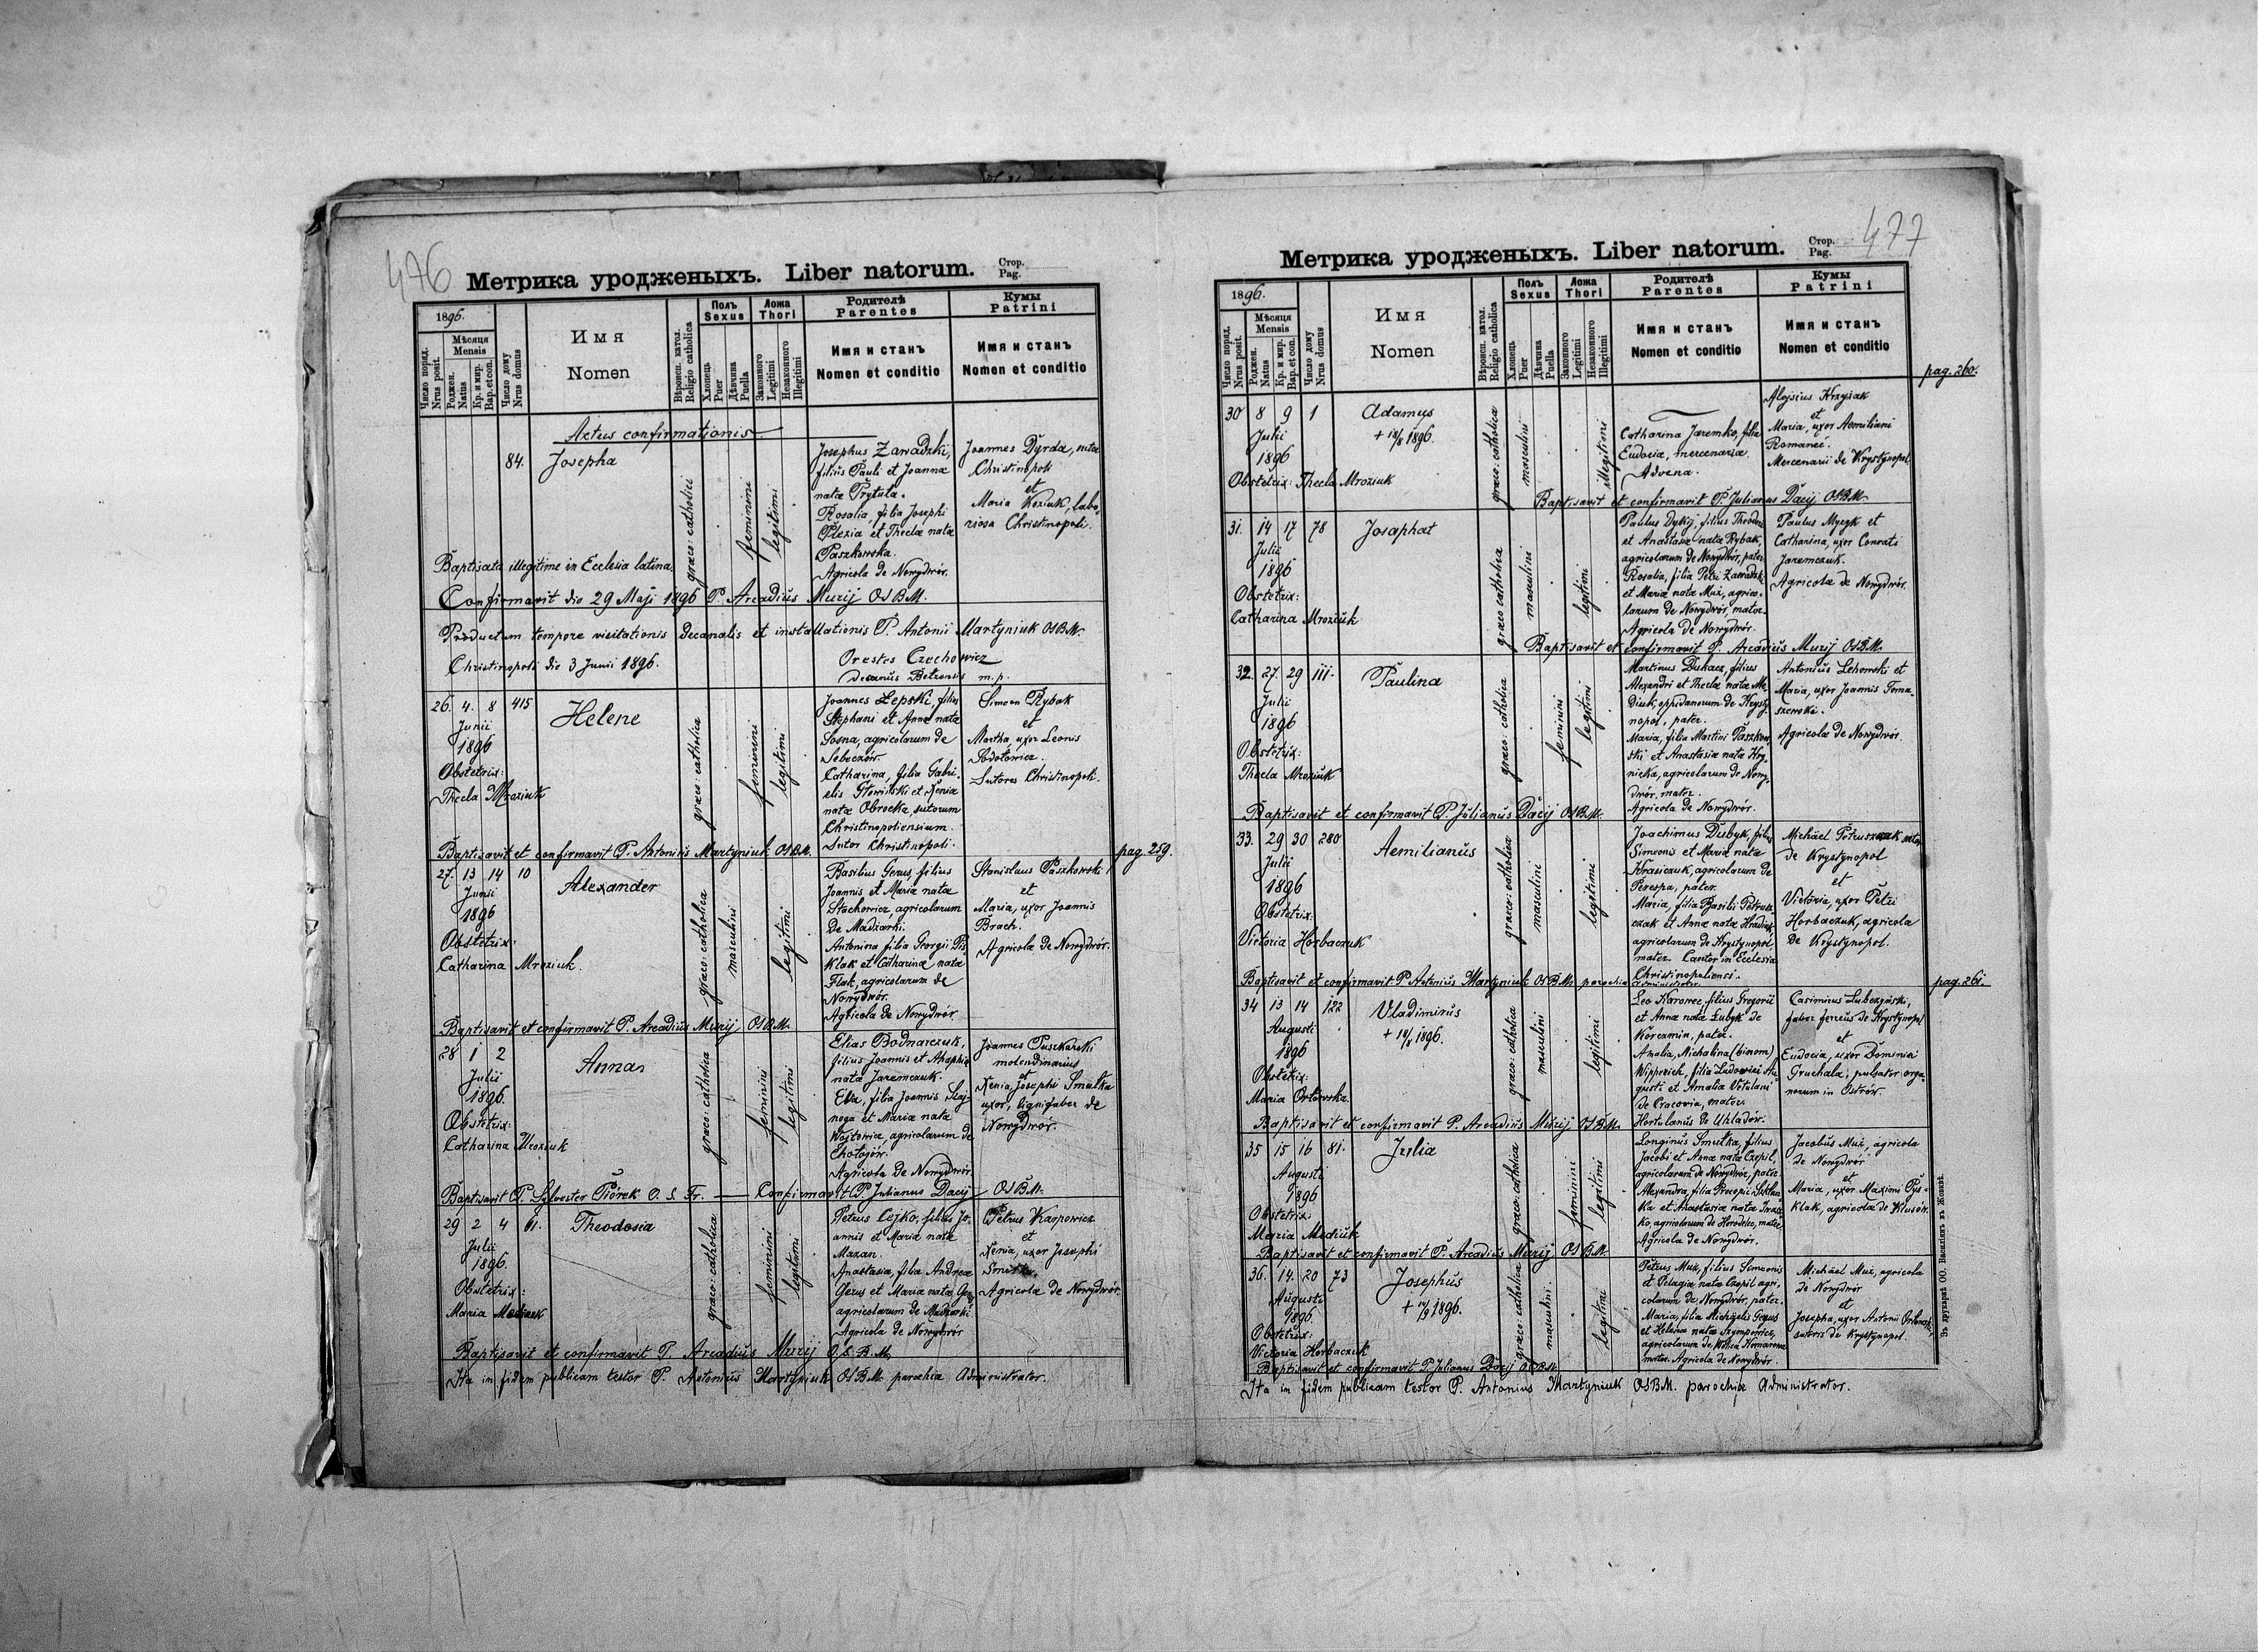 476
Метрика уродженыхъ. Liber natorum.
Стор.
Pag.
1896.
Число поряд.
Nrus posit.
Мѣсяця
Mensis
Роджен.
Natus
Кр. и мир.
Bap. et con.
Число дому
Nrus domus
Имя
Nomen
Вѣроисп. катол.
Religio catholica
Полъ
Sexus
Хлопець
Puer
Дѣвчина
Puella
Ложа
Thori
Законного
Legitimi
Незаконного
Illegitimi
Родителѣ
Parentes
Имя и станъ
Nomen et conditio
Кумы
Patrini
Имя и станъ
Nomen et conditio
Actus confirmationis
84. Josepha
graeco: catholici
feminini
legitimi
Josephus Zawadzki,
filius Pauli et Joannae
natae Prytula.
Rosalia, filia Josephi
et Theclae natae
Paszkowska.
Agricola de Nowydwór.
Joannes Dyrda, sutor
Christinopoli
et
Maria Koziuk, labo-
riosa Christinopoli.
Baptisata illegitime in Ecclesia latina.
Confirmavit die 29 Maji 1896 P. Arcadius Muzij OSBM.
Productum tempore visitationis decanalis et installationis P. Antonii Martyniuk OSBM.
Christinopoli die 3 Junii 1896.
Orestes Czechowicz
decanus Belzensis m.p.
26. 4. 8 415
Junii
1896
Obstetrix:
Thecla Mroziuk
Helene
graeco: catholica
feminini
legitimi
Joannes Lepski, filius
Stephani et Annae nata
Sosna, agricolarum de
Sebeczów.
Catharina, filia Gabri-
elis Głowiński et Xenia
natae Obrocka, sutorum
Christinopoliensium.
Sutor Christinopoli.
Simeon Rybak
et
Martha, uxor Leonis
Sutores Christinopoli.
Baptisavit et confirmavit P. Antonius Martyniuk OSBM.
pag. 259.
27. 13 14 10
Junii
1896
Obstetrix:
Catharina Mroziuk.
Alexander
graeco: catholica
masculini
legitimi
Basilius Gerus filius
Joannis et Maria natae
Stachowicz, agricolarum
de Madziarki.
Antonina filia Georgii Pis-
klak et Catharinae nata
Flak, agricolarum de
Nowydwór.
Agricola de Nowydwór
Stanislaus Paszkowski
et
Maria, uxor Joannis
Brach.
Agricolae de Nowydwór.
Baptisavit et confirmavit P. Arcadius Muzij OSBM.
28 1 2
Julii
1896.
Obstetrix:
Catharina Mroziuk
Anna
graeco: catholica
feminini
legitimi
Elias Bodnarczuk,
filius Joannis et Ahaphia
natae Jaremczuk.
Eva, filia Joannis
et Maria nata
Wojtowicz, agricolarum de
Chołojów.
Agricola de Nowydwór
Joannes Puszkarski
molendinarius
et
Xenia, Josephi Smutka
uxor, lignifaber de
Nowydwór.
Baptisavit P. Sylvester Piórek O. S. Fr. — Confirmavit P. Julianus Dacij OSBM.
29 2 4 61.
Julii
1896.
Obstetrix:
Maria
Theodosia
graeco: catholica
feminini
legitimi
Petrus Cejko, filius Jo-
annis et Maria nata
Mazan.
Anastasia, filia Andreae
Gerus et Maria natae
agricolarum de Madziarki
Agricola de Nowydwór
Petrus Karpowicz
et
Xenia, uxor Josephi
Agricolae de Nowydwór.
Baptisavit et confirmavit P. Arcadius Muzij O. S. B. M.
Ita in fidem publicam testor P. Antonius Martyniuk OSBM. parochiae Administrator.
477
Метрика уродженыхъ. Liber natorum.
Стор.
Pag.
1896.
Число поряд.
Nrus posit.
Мѣсяця
Mensis
Роджен.
Natus
Кр. и мир.
Bap. et con.
Число дому
Nrus domus
Имя
Nomen
Вѣроисп. катол.
Religio catholica
Полъ
Sexus
Хлопець
Puer
Дѣвчина
Puella
Ложа
Thori
Законного
Legitimi
Незаконного
Illegitimi
Родителѣ
Parentes
Имя и станъ
Nomen et conditio
Кумы
Patrini
Имя и станъ
Nomen et conditio
pag. 260.
30 8 9 1
Julii
1896
Obstetrix: Thecla Mroziuk
Adamus
graeco: catholica
masculini
illegitimi
Catharina Jaremko, filia
Eudociae, mercenariae.
Advena.
Aloysius Krzyżak
et
Maria, uxor Aemiliani
Romaneć.
Mercenarii de Krystynopol.
Baptisavit et confirmavit P. Julianus Dacij OSBM.
31. 14 17 78
Julii
1896
Obstetrix:
Catharina Mroziuk
Josaphat
graeco catholica
masculini
legitimi
Paulus Dykij, filius Theodori
et Anastasiae nata Rybak,
agricolarum de Nowydwór, pater
Rosalia, filia Petri Zawadzki
et Maria nata Muż, agrico-
larum de Nowydwór, mater.
Agricola de Nowydwór.
Paulus Myczk et
Catharina, uxor Conrati
Jaremczuk.
Agricolae de Nowydwór.
Baptisavit et confirmavit P. Arcadius Muzij OSBM.
32. 27. 29 111.
Julii
1896
Obstetrix:
Thecla Mroziuk
Paulina
graeco: catholica
feminini
legitimi
Martinus Dukacz, filius
Alexandri et Theclae natae Me-
diuk, oppidanorum de Krysty-
nopol, pater.
Maria, filia Martini Paszkow-
ski et Anastasiae nata Kry-
nicka, agricolarum de Nowy-
dwór, mater.
Agricola de Nowydwór.
Antonius Lehowski et
Maria, uxor Joannis Toma-
szewski.
Agricolae de Nowydwór.
Baptisavit et confirmavit P. Julianus Dacij OSBM.
33. 29 30 280
Julii
1896
Obstetrix:
Victoria Horbaczuk
Aemilianus
graeco: catholica
masculini
legitimi
Joachimus Dzibyk, filius
Simeonis et Maria nata
Krasiczuk, agricolarum de
Perespa, pater.
Maria, filia Basilii Petrusz-
czak et Anna nata
agricolarum de Krystynopol
mater. Cantor in Ecclesia
Christinopoliensi.
Michaël Petruszczak sutor
de Krystynopol
et
Victoria, uxor Petri
Horbaczuk, agricola
de Krystynopol.
Baptisavit et confirmavit P. Antonius Martyniuk OSBM. parochiae Administrator.
pag. 261.
34 13 14 122
Augusti
1896
Obstetrix:
Maria Orłowska
Vladimirus
graeco: catholica
masculini
legitimi
Leo Karowec, filius Gregorii
et Annae nata Łubyk de
Korczmin, pater.
Amalia, Michalina (binom)
filia Ludovici Au-
gusti et Amalia Vetulani
de Cracovia, mater.
Hortulanus de Uhladów.
Casimirus Lubczyński,
faber ferreus de Krystynopol
et
Eudocia, uxor Dominici
Gruchala, pulsator orga-
norum in Ostrów.
Baptisavit et confirmavit P. Arcadius Muzij OSBM.
35 15 16 81.
Augusti
1896
Obstetrix:
Maria Mediuk
Julia
graeco: catholica
feminini
legitimi
Longinus Smutka, filius
Jacobi et Annae nata Czepil,
agricolarum de Nowydwór, pater
Alexandra, filia Procopii
et Anastasiae nata
agricolarum de Horodzec, mater
Agricola de Nowydwór.
Jacobus Muż, agricola
de Nowydwór
et
Maria, uxor Maximi Pys-
klak, agricola de Klusów.
Baptisavit et confirmavit P. Arcadius Muzij OSBM.
36. 14. 20 73
Augusti
1896.
Obstetrix:
Victoria Horbaczuk
Josephus
graeco: catholica
masculini
legitimi
Petrus Muż, filius Simeonis
et Pelagiae nata Czepil agri-
colarum de Nowydwór, pater.
Maria, filia Michaelis Gerus
et Helenae nata Szympowicz,
agricolarum de Wólka Komarowa
mater. Agricola de Nowydwór.
Michaël Muż, agricola
de Nowydwór
et
Josepha, uxor Antonii Orłowski,
sutoris de Krystynopol.
Baptisavit et confirmavit P. Julianus Dacij OSBM.
Ita in fidem publicam testor P. Antonius Martyniuk OSBM. parochiae Administrator.
Въ друкарнѣ ОО. Василіянъ въ Жовквѣ.